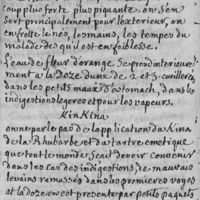 coup plus forte plus piquante. on s'en
sert principalement pour l'exterieur, on
en frotte le nés, les mains, les tempes du
malade des qu'il est en foiblesse.
L'eau de fleur d'orange. se prend interieure
ment a la doze d'une de 2 et 3 cuillerées
dans les petits maux d'estomach, dans les
indigestions legeres et pour les vapeurs.
KinKina
on ne parle pas de l'application du Kina
de la Rhubarbe et du tartre emetique
que tout le monde scait devoir convenir
dans les cas des indigestions, de mauvais
levains ramassés dans les premieres voyes
et la doze en est presenter par petits paquets